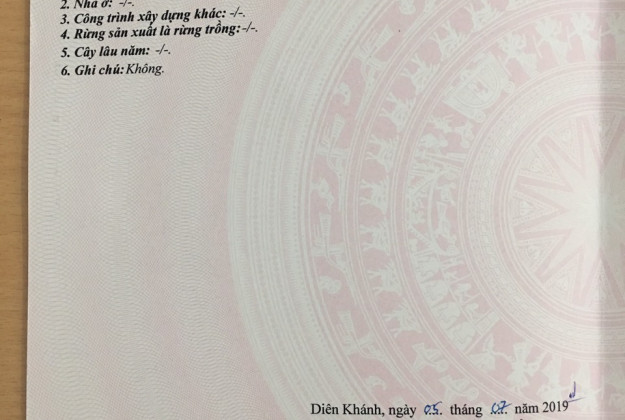 2. Nhà ở: -/-.
3. Công trình xây dựng khác: -/-.
4. Rừng sản xuất là rừng trồng: -/-.
5. Cây lâu năm: -/-.
6. Ghi chú: Không.
Diên Khánh, ngày 05. tháng 07. năm 2019